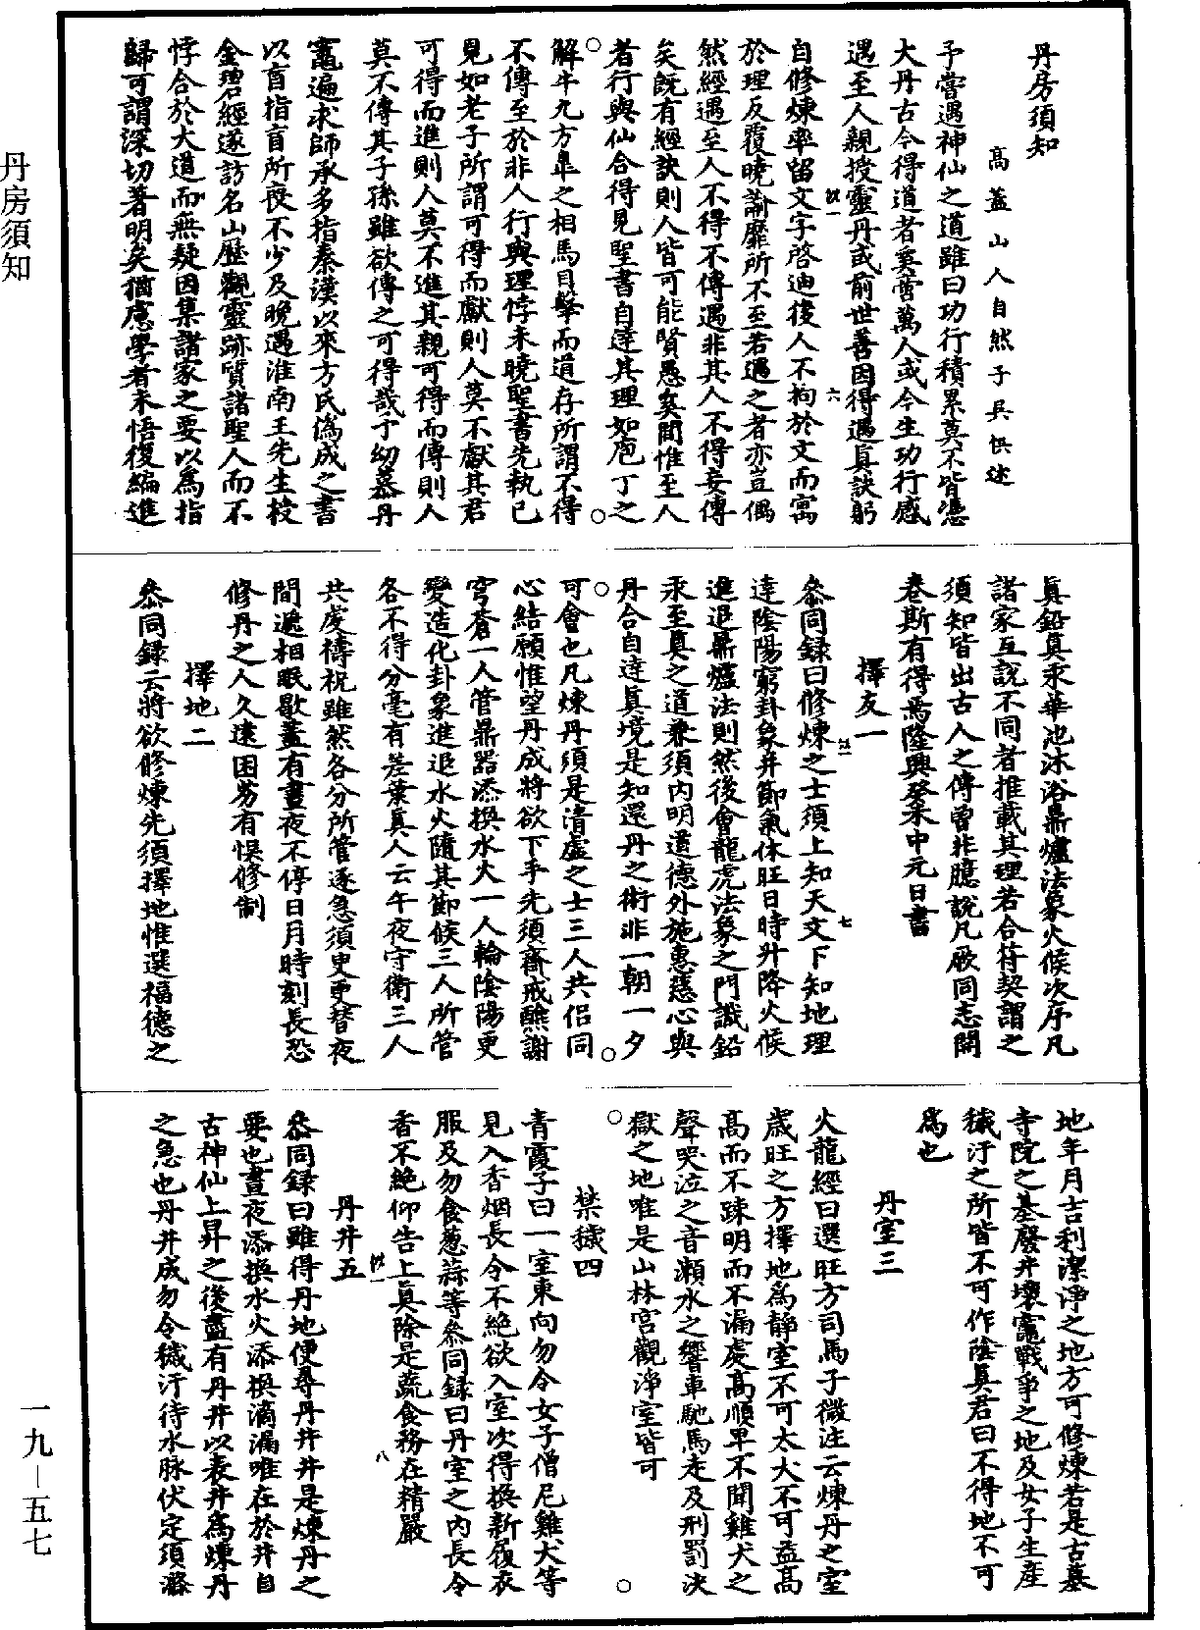 丹房須知
高蓋山人自然子吳悞述
予嘗遇神仙之道雖曰功行積累莫不皆憑
大丹古今得道者奚啻萬人或今生功行感
遇至人親授靈丹或前世善因得遇真訣躬
自修煉率留文字啓迪後人不拘於文而寓
於理反覆曉諭靡所不至若遇之者亦豈偶
然經遇至人不得不傳遇非其人不得妄傳
矣既有經訣則人皆可能賢愚奚間惟至人
者行與仙合得見聖書自達其理如庖丁之
解牛九方臯之相馬目擊而道存所謂不得
不傳至於非人行與理悖未曉聖書先執已
見如老子所謂可得而獻則人莫不獻其君
可得而進則人莫不進其親可得而傳則人
莫不傳其子孫雖欲傳之可得哉予幼慕丹
竈遍求師承多指秦漢以來方氏偽成之書
以盲指盲所喪不少及晚遇淮南王先生授
金碧經遂訪名山歷觀靈跡質諸聖人而不
悖合於大道而無疑因集諸家之要以為指
歸可謂深切著明矣猶慮學者未悟復編進
真鉛真汞華池沐浴鼎爐法象火候次序凡
諸家互說不同者推載其理若合符契謂之
須知皆出古人之傳曾非臆說凡厥同志開
卷斯有得焉隆興癸未中元日書
擇友一
叅同録曰修煉之士須上知天文下知地理
達陰陽窮卦象并節氣休旺日時升降火候
進退鼎爐法則然後會龍虎法象之門識鉛
汞至真之道兼須内明道德外施惠慈心與
丹合自達真境是知還丹之術非一朝一夕
可會也凡煉丹須是清虛之士三人共侣同
心結願惟望丹成將欲下手先須齋戒醮謝
穹蒼一人管鼎器添換水火一人輪陰陽更
變造化卦象進退水火隨其節候三人所管
各不得分毫有差葉真人云午夜守衛三人
共虔禱祝雖然各分所管逐急須更更替夜
間遞相眠歇蓋有晝夜不停日月時刻長恐
修丹之人久遠困勞有悞修制
擇地二
叅同録云將欲修煉先須擇地惟選福德之
地年月吉利潔淨之地方可修煉若是古墓
寺院之基廢井壞竈戰爭之地及女子生產
穢汙之所皆不可作陰真君曰不得地不可
為也
丹室三
火龍經曰選旺方司馬子微注云煉丹之室
歲旺之方擇地為靜室不可太大不可益高
高而不踈明而不漏處高順卑不聞雞犬之
聲哭泣之音瀨水之響車馳馬走及刑罰決
獄之地唯是山林宫觀淨室皆可
禁穢四
青霞子曰一室東向勿令女子僧尼雞犬等
見入香烟長令不絕欲入室次得換新履衣
服及勿食葱蒜等叅同録曰丹室之内長令
香不絕仰告上真除是蔬食務在精嚴
丹井五
叅同録曰雖得丹地便尋丹井井是煉丹之
要也晝夜添換水火添換滴漏唯在於井自
古神仙上昇之後盡有丹井以表井為煉丹
之急也丹井成勿令穢汙待水脉伏定須潞
丹房須知
一九—五七